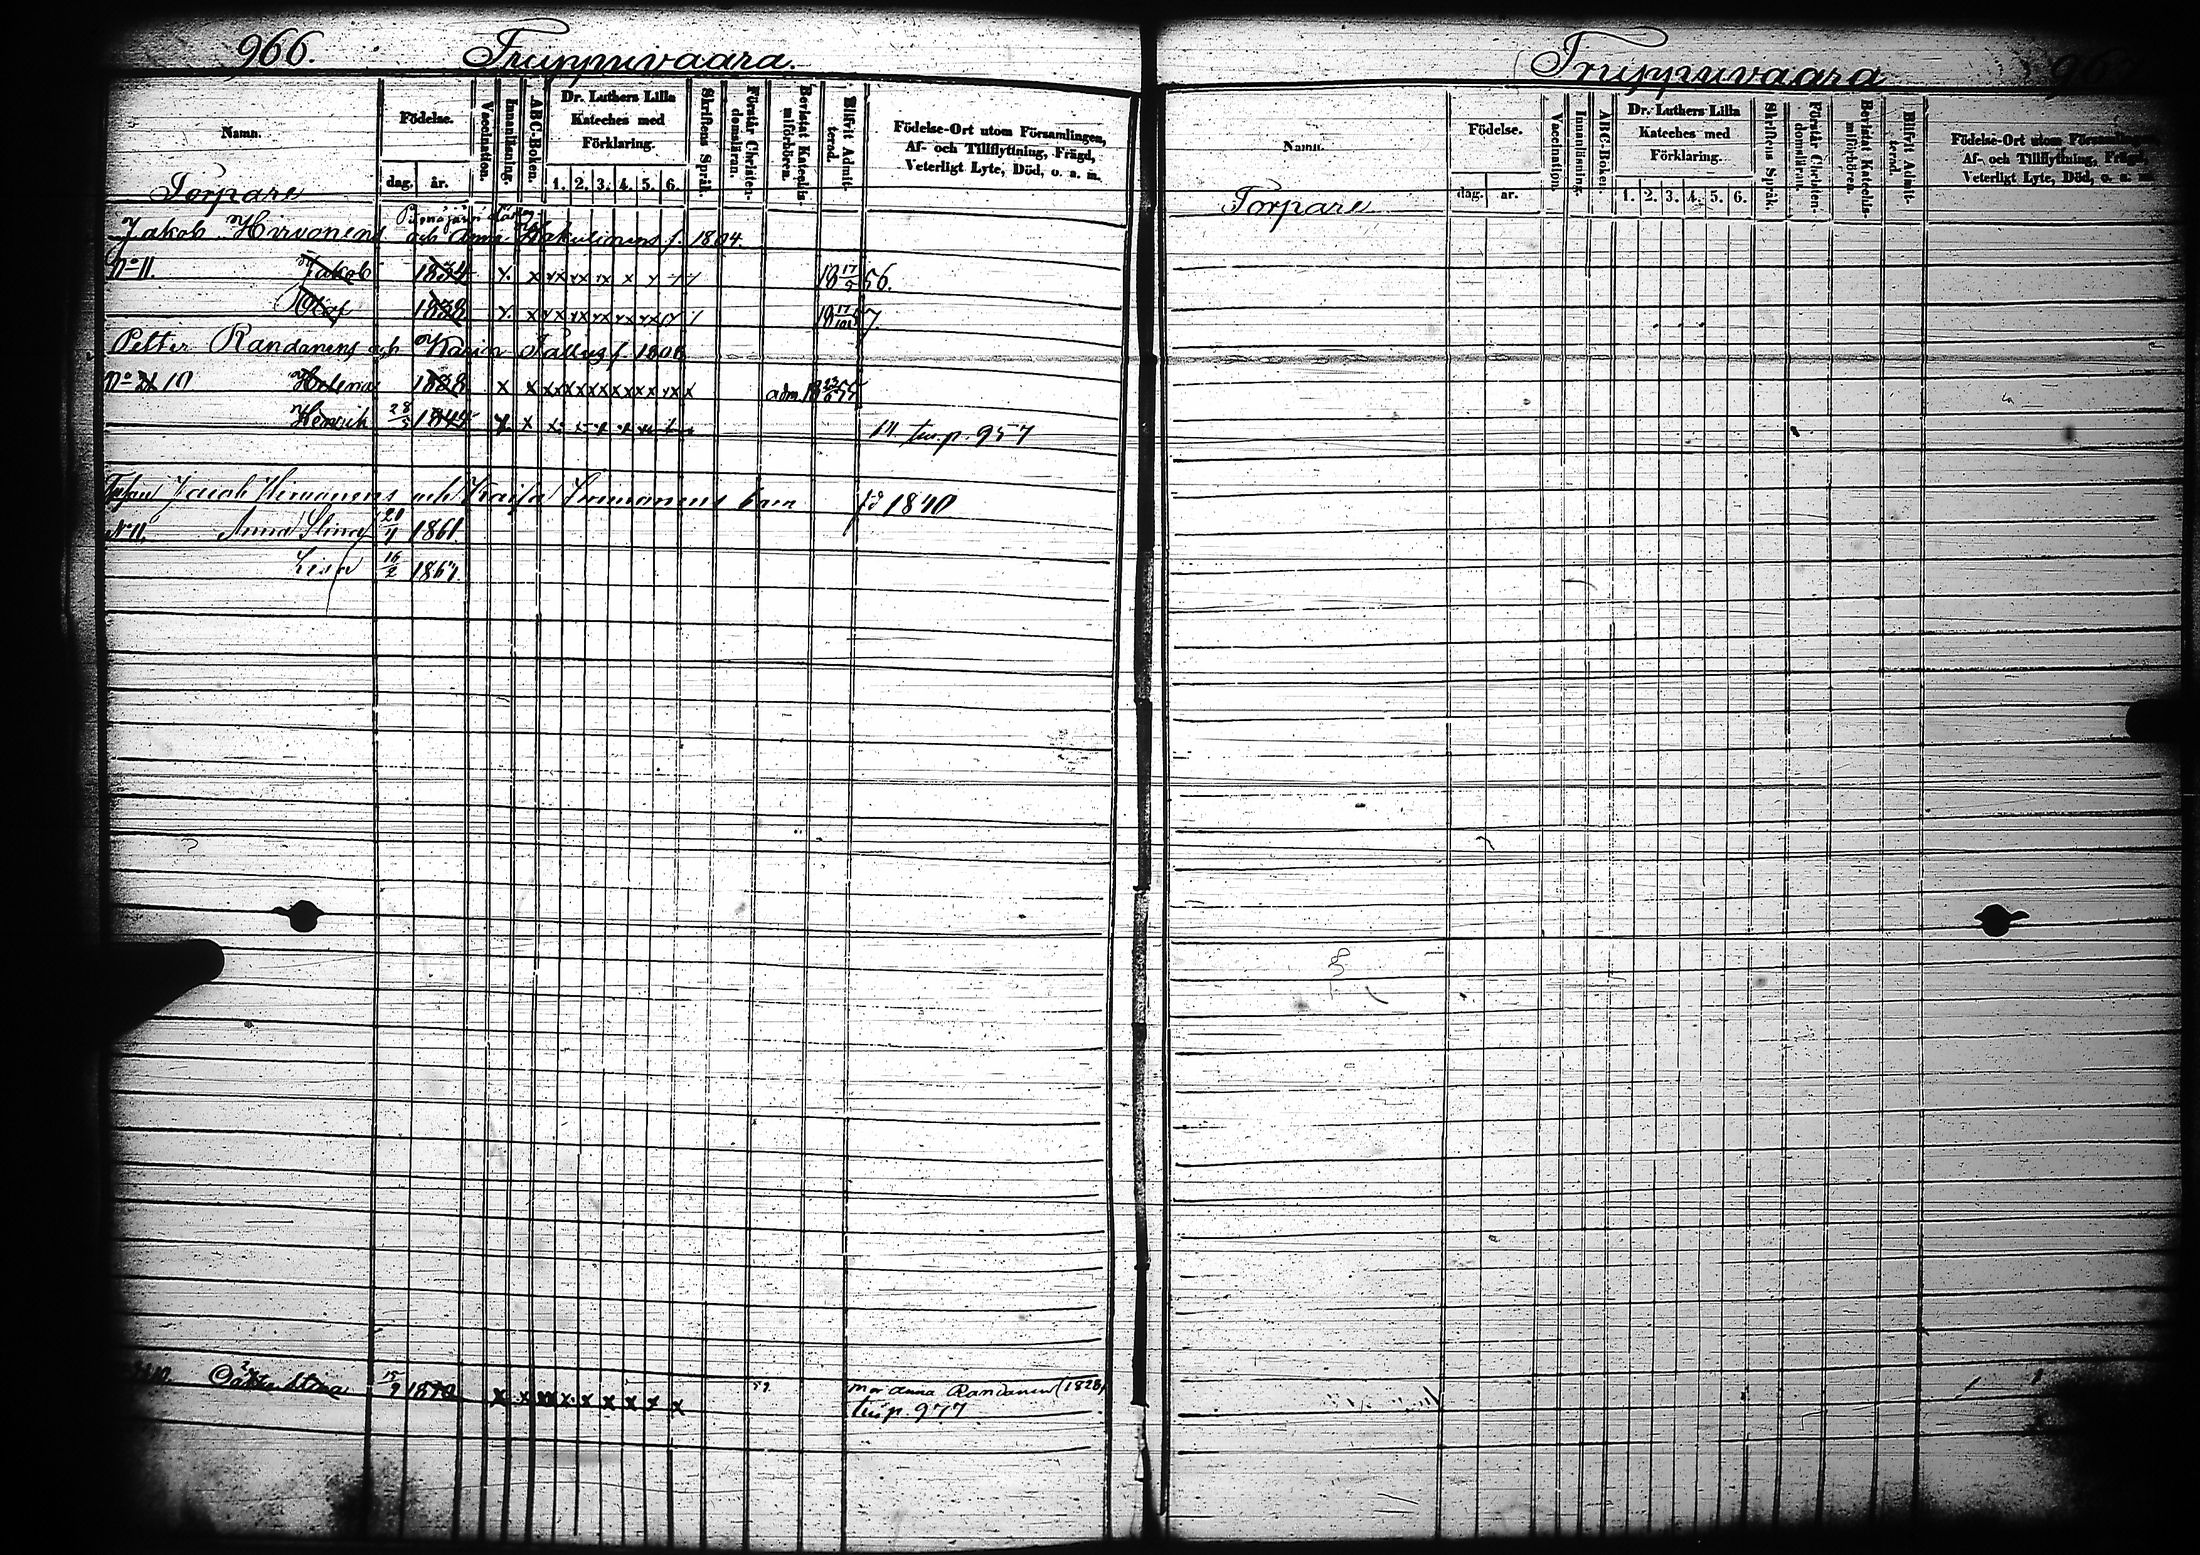 966. Truppuvaara.
Namn. Födelse. Vaccination. Innanläsning. ABC-Boken. Dr. Luthers Lilla Kateches med Förklaring. Skriftens Språk. Förstår Christendomsläran. Bevistat Katechismiförhören. Blifvit Admitterad. Födelse-Ort utom Församlingen, Af- och Tillflyttning, Frägd, Veterligt Lyte, Död, o. a. m.
dag. år. 1. 2. 3. 4. 5. 6.
Torpare
Jakob Hirvonens och Anna f. 1804.
No 11. Jakob 1834 x x x x x x 18 17/5 56.
Olof 1838 x x x x x x 18 17/10 57
Petter Randanens och Karin f. 1806
No 10 Helena 1838 x x x x x x adm. 18 23/6 55
Henrik 28/5 1844 x x x x x x tu. p. 957
Jacob Hirvonens och Kaisa barn fd 1840
N 11. Anna Stina 20/4 1861
Lisa 16/2 1867
Stina x x x x x x x x mor Anna Randanen (1828)
tu p. 977
Truppuvaara 967
Namn. Födelse. Vaccination. Innanläsning. ABC-Boken. Dr. Luthers Lilla Kateches med Förklaring. Skriftens Språk. Förstår Christendomsläran. Bevistat Katechismiförhören. Blifvit Admitterad. Födelse-Ort utom Församlingen, Af- och Tillflyttning, Frägd, Veterligt Lyte, Död, o. a. m.
dag. år. 1. 2. 3. 4. 5. 6.
Torpare